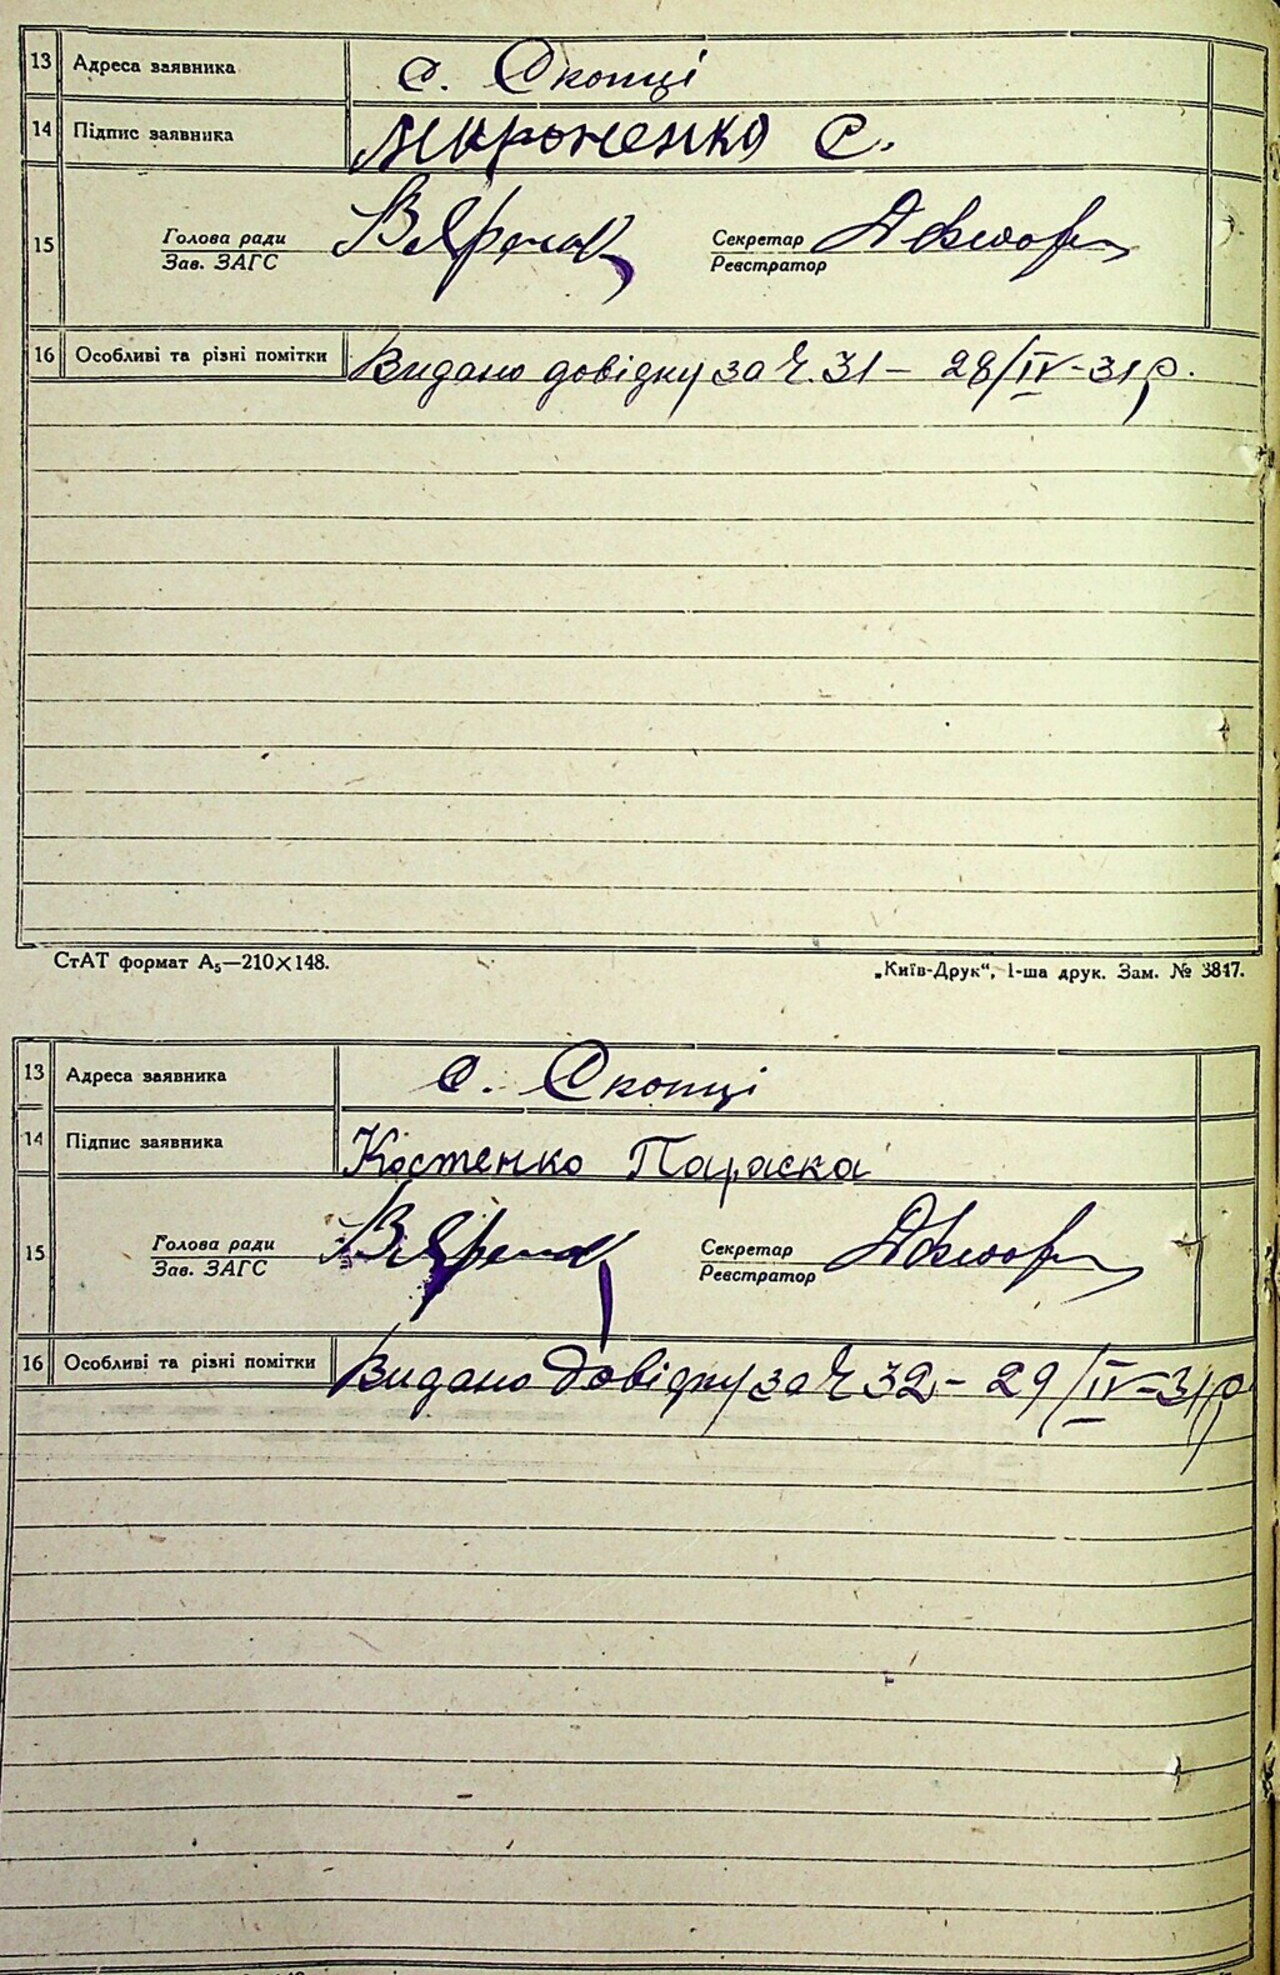 13 Адреса заявника с. Скопці
14 Підпис заявника Мироненко С.
15 Голова ради Секретар
Зав. ЗАГС Реєстратор
16 Особливі та різні помітки Видано довідку за Ч. 31 – 28/IV-31 р.
СтАТ формат А5—210×148. „Київ-Друк“, 1-ша друк. Зам. № 3817.
13 Адреса заявника с. Скопці
14 Підпис заявника Костенко Параска
15 Голова ради Секретар
Зав. ЗАГС Реєстратор
16 Особливі та різні помітки Видано довідку за Ч 32 – 29/IV-31 р